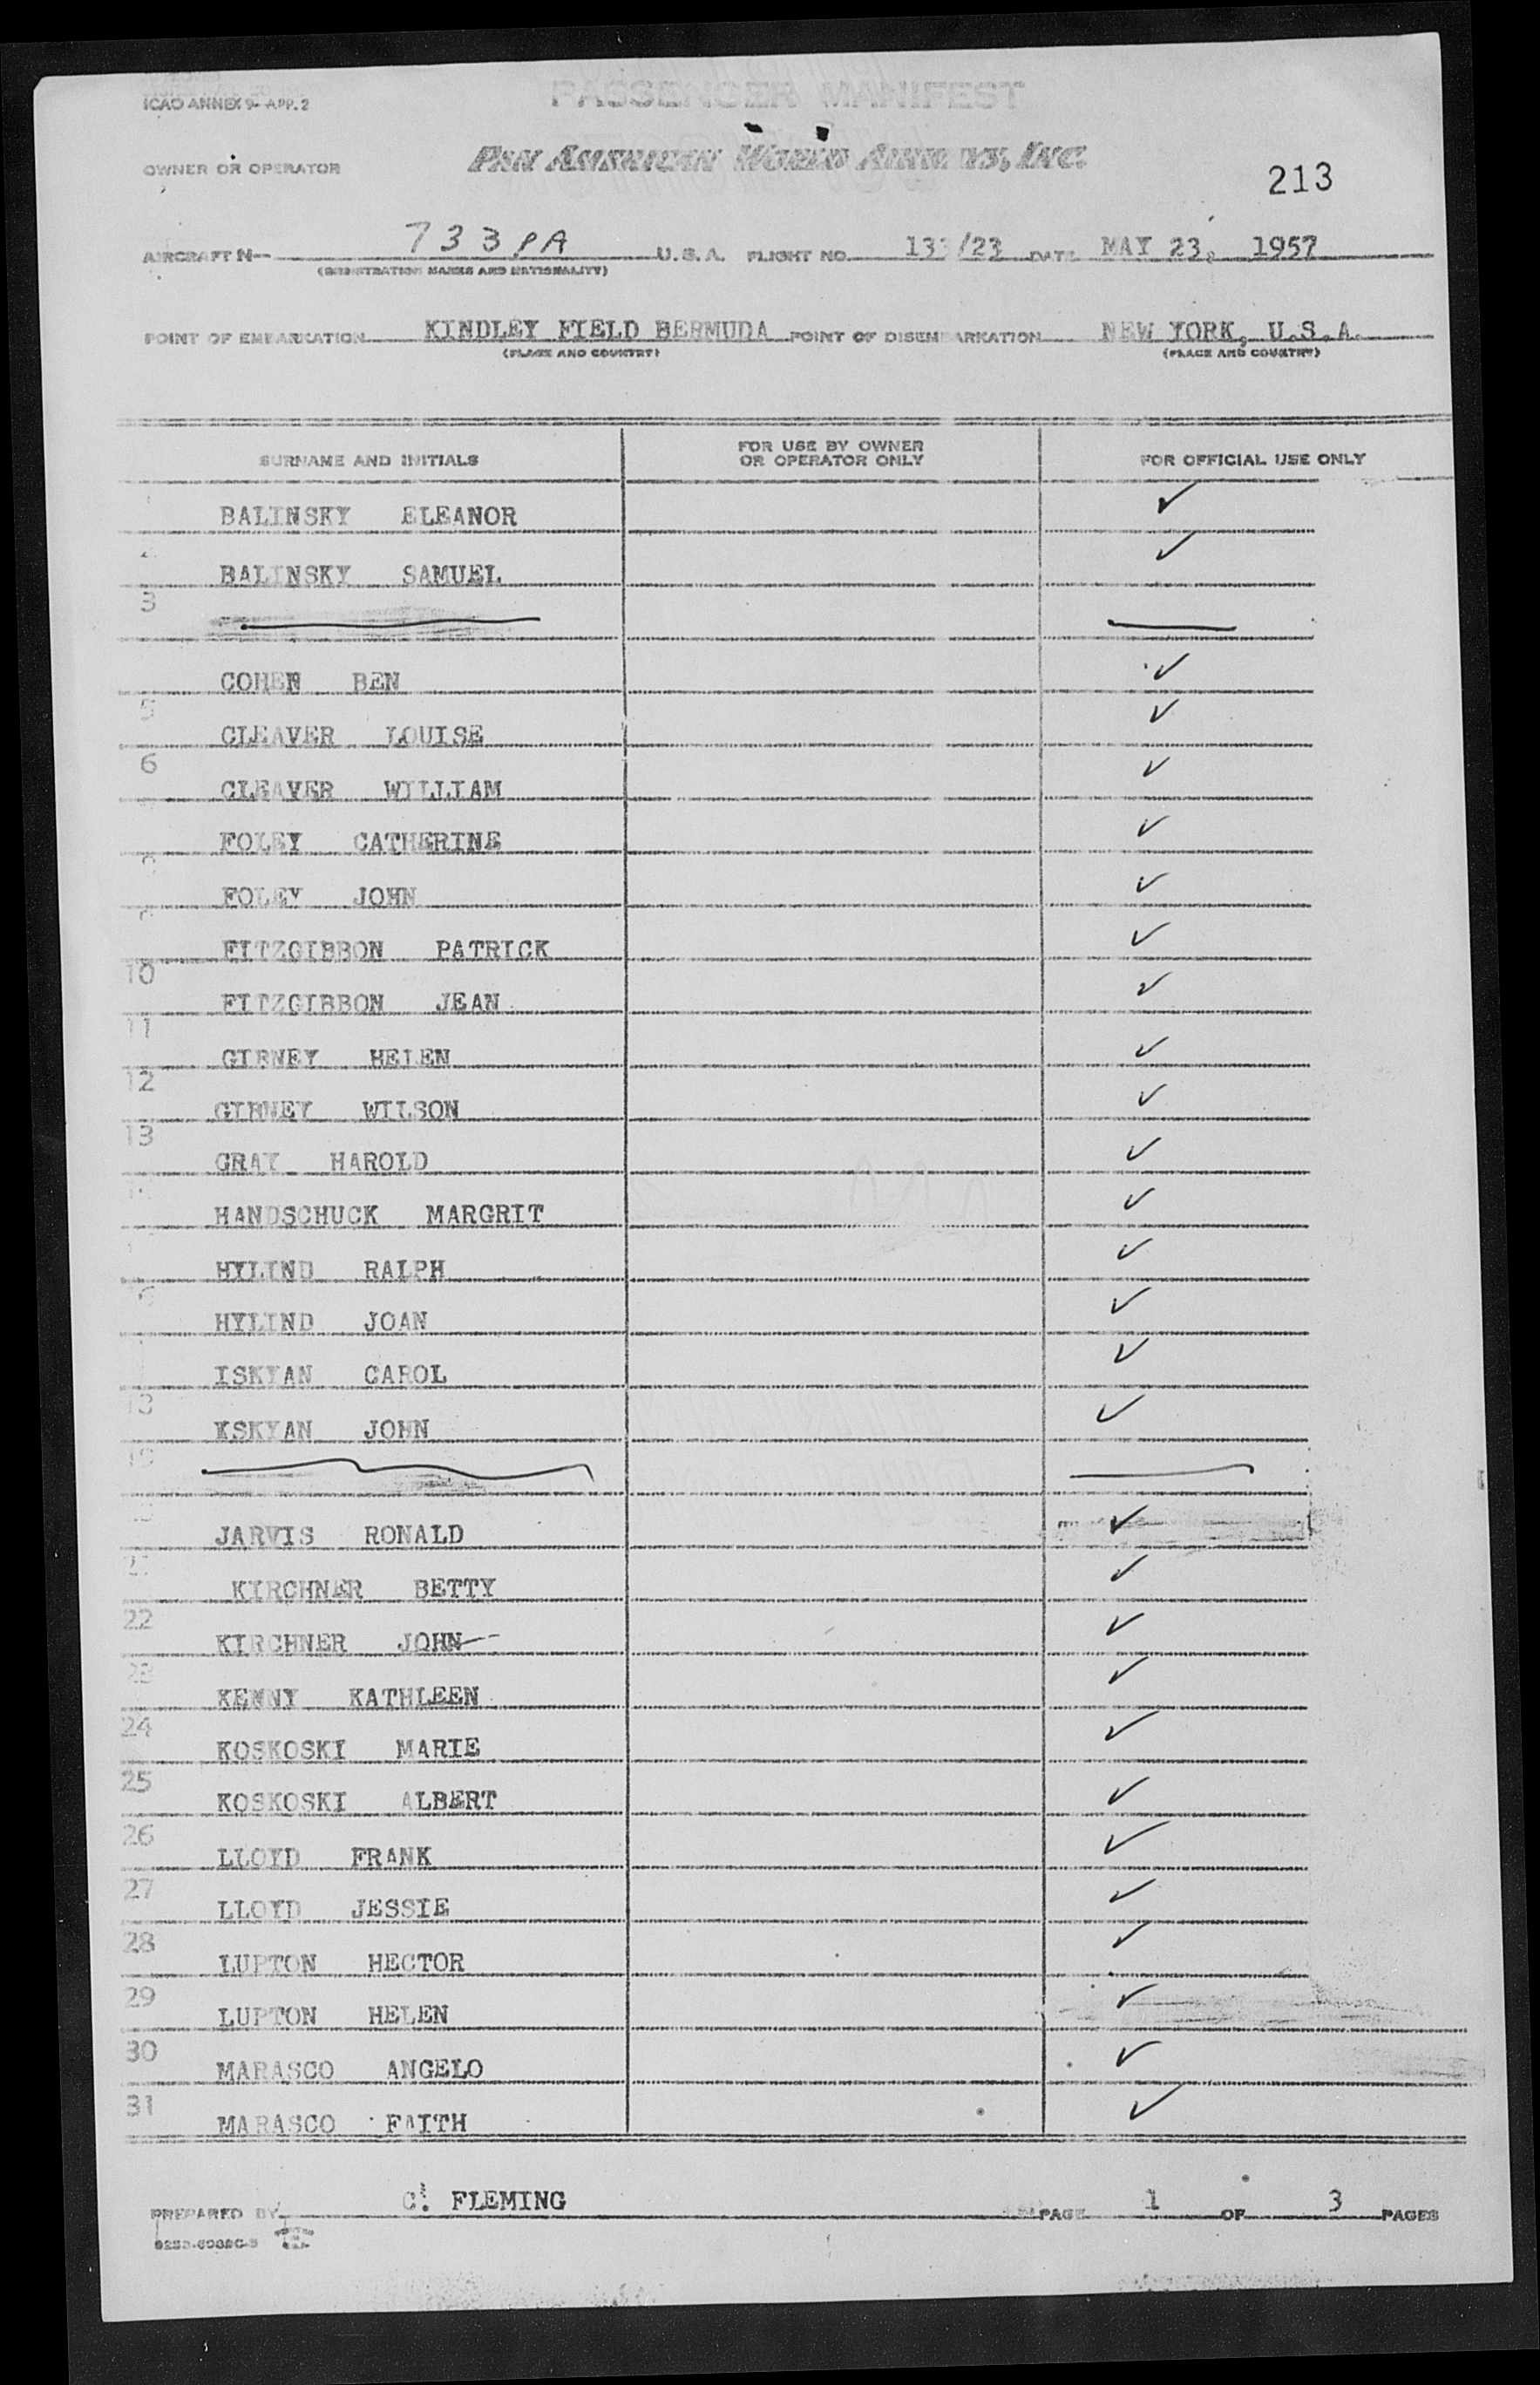 ICAO ANNEX 9- APP. 2
PASSENGER MANIFEST
OWNER OR OPERATOR
PAN AMERICAN WORLD AIRWAYS, INC.
213
AIRCRAFT N- 733PA U.S.A. FLIGHT NO. 133/23 DATE MAY 23, 1957
(REGISTRATION MARKS AND NATIONALITY)
POINT OF EMBARKATION KINDLEY FIELD BERMUDA POINT OF DISEMBARKATION NEW YORK, U.S.A.
(PLACE AND COUNTRY) (PLACE AND COUNTRY)
SURNAME AND INITIALS
FOR USE BY OWNER
OR OPERATOR ONLY
FOR OFFICIAL USE ONLY
BALINSKY ELEANOR ✓
BALINSKY SAMUEL ✓
3
COHEN BEN ✓
5 CLEAVER LOUISE ✓
6 CLEAVER WILLIAM ✓
FOLEY CATHERINE ✓
8 FOLEY JOHN ✓
FITZGIBBON PATRICK ✓
10 FITZGIBBON JEAN ✓
11 GIBNEY HELEN ✓
12 GIBNEY WILSON ✓
13 GRAY HAROLD ✓
HANDSCHUCK MARGRIT ✓
HYLIND RALPH ✓
HYLIND JOAN ✓
ISKYAN CAROL ✓
18 KSKYAN JOHN ✓
19
JARVIS RONALD ✓
21 KIRCHNER BETTY ✓
22 KIRCHNER JOHN ✓
23 KENNY KATHLEEN ✓
24 KOSKOSKI MARIE ✓
25 KOSKOSKI ALBERT ✓
26 LLOYD FRANK ✓
27 LLOYD JESSIE ✓
28 LUPTON HECTOR ✓
29 LUPTON HELEN ✓
30 MARASCO ANGELO ✓
31 MARASCO FAITH ✓
PREPARED BY C. FLEMING PAGE 1 OF 3 PAGES